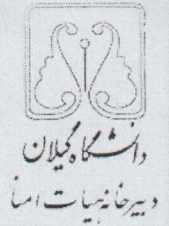 دانشگاه گیلان
دبیرخانه هیات امنا